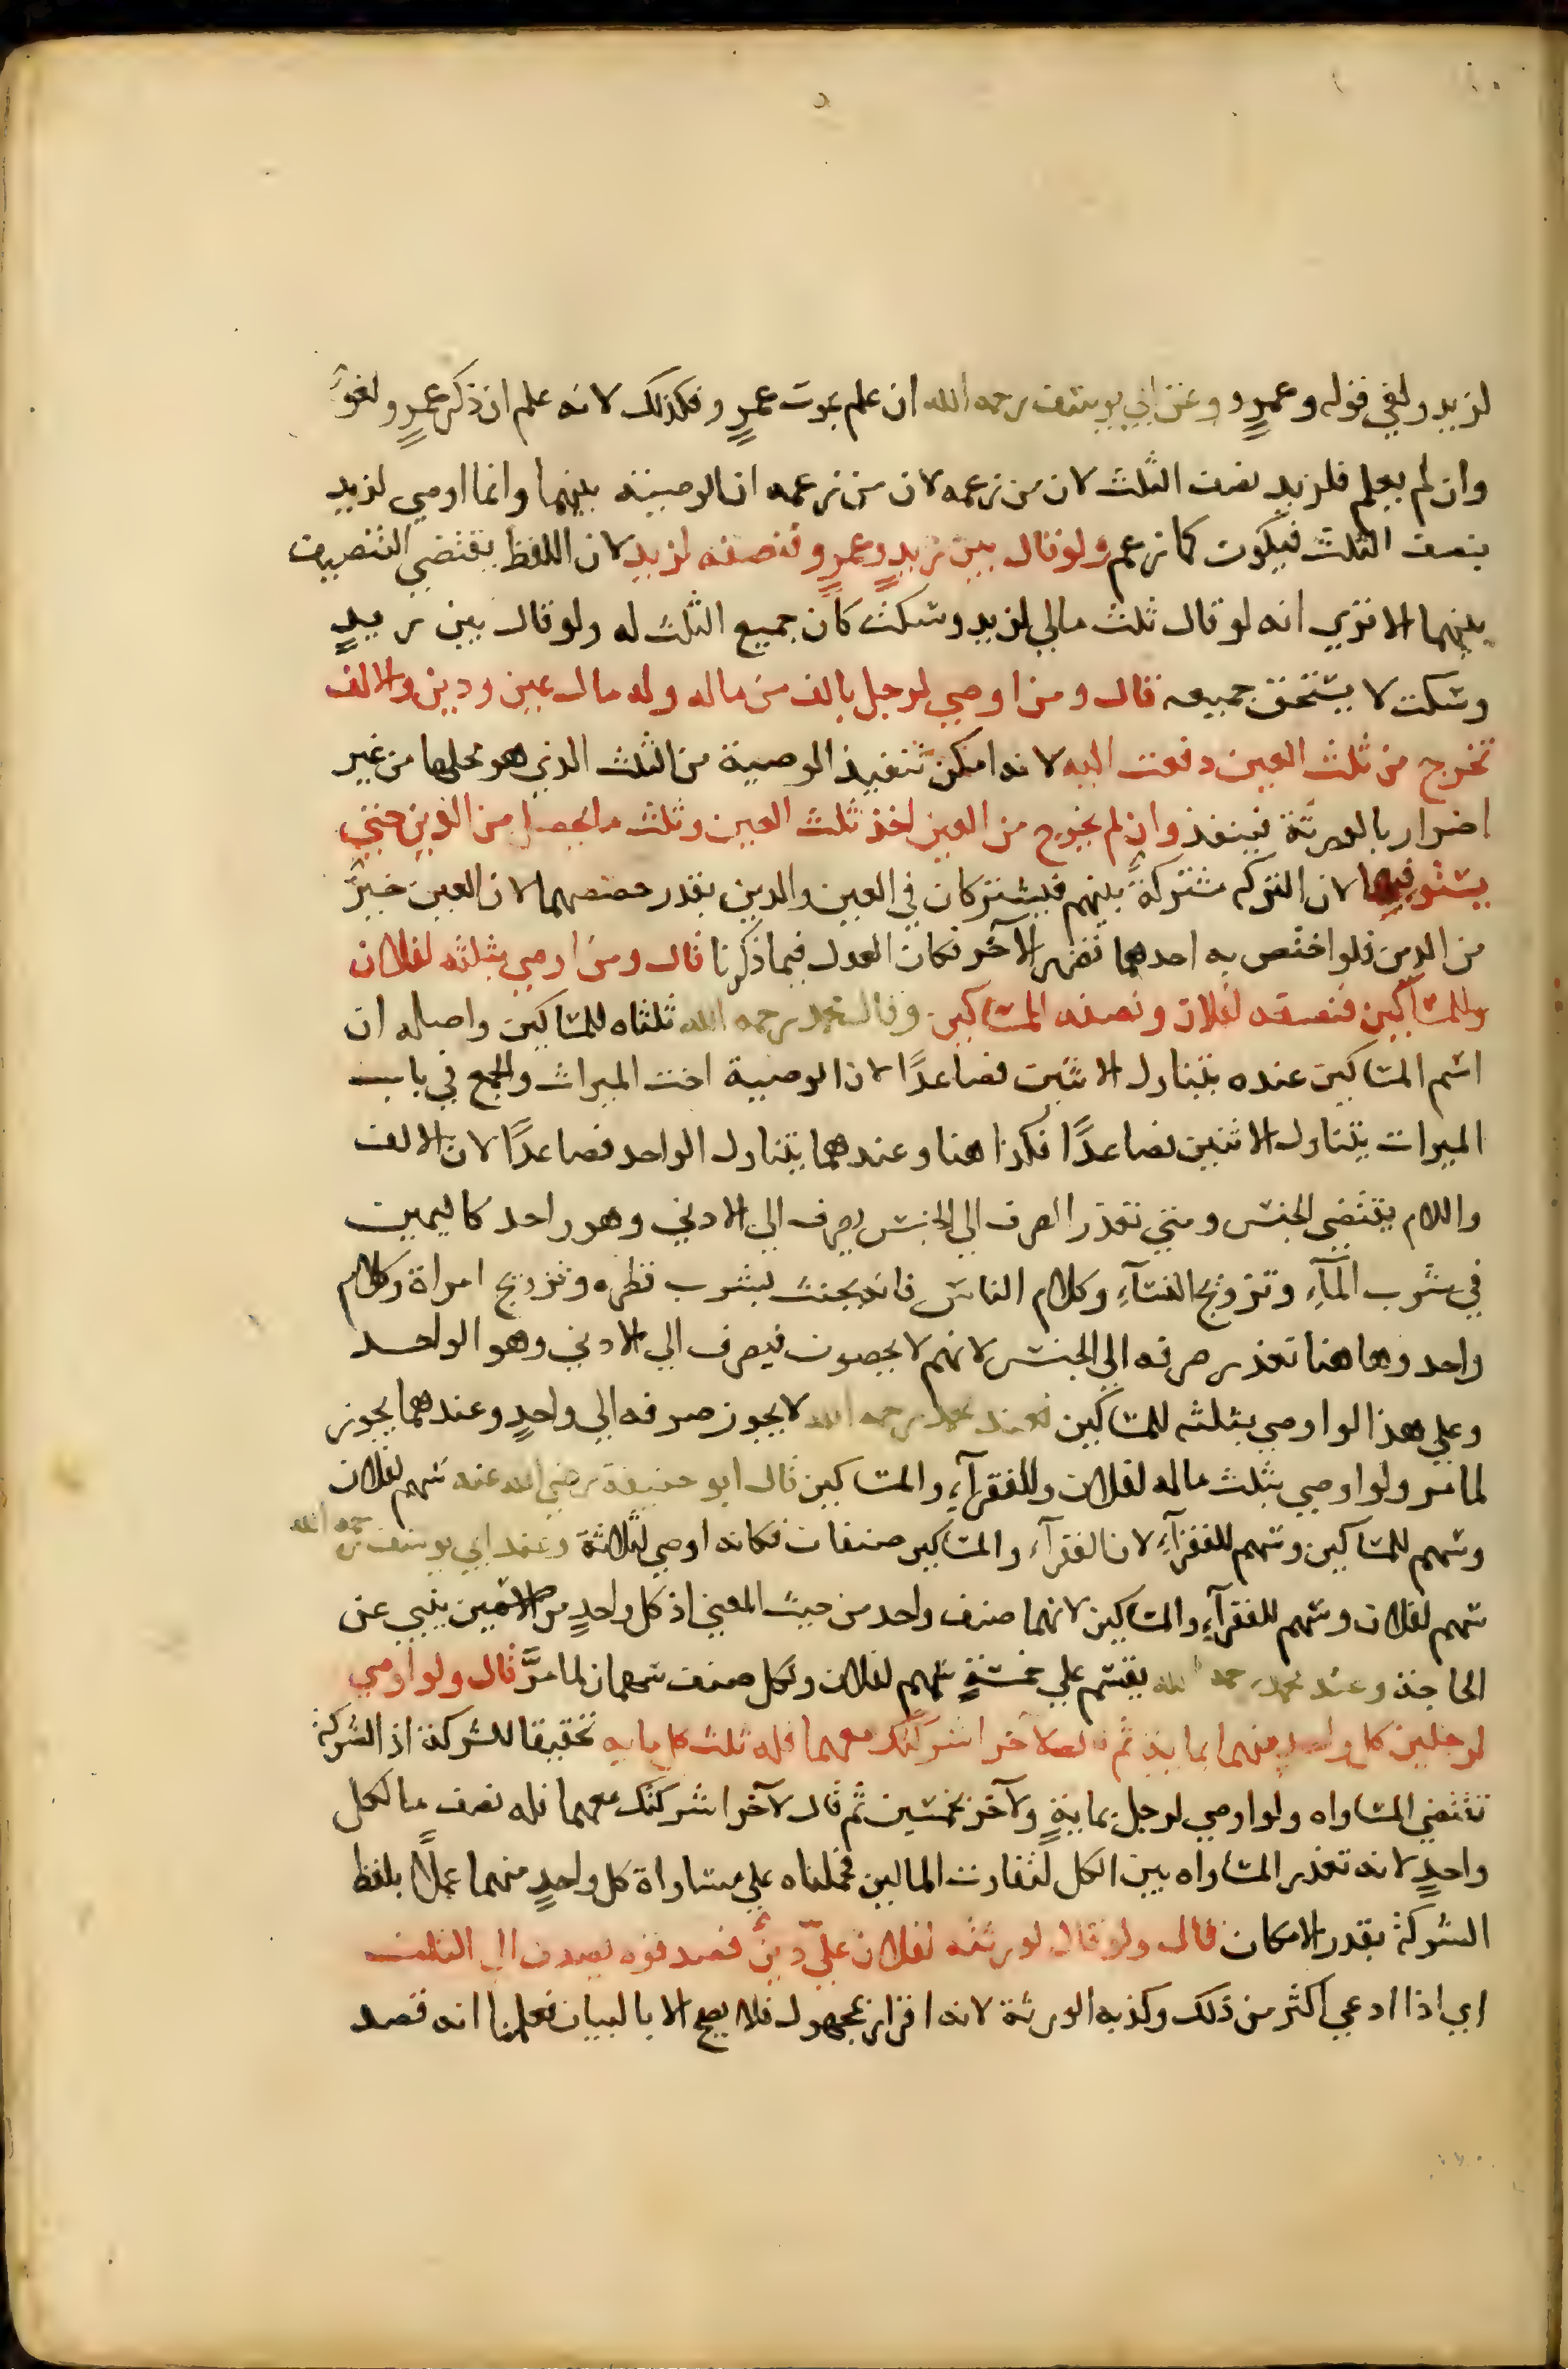 لزيد ولغي قوله وعمرٍو وعن ابي يوسف رحمه الله ان علم بموت عمرٍو فكذلك لانه علم ان ذكر عمرٍو لغوٌ
وان لم يعلم فلزيد نصف الثلث لان من زعمه لان من زعمه ان الوصية بينهما وانما اوصي لزيد
بنصف الثلث فيكون كما زعم ولو قال بين زيدٍ وعمرٍو فنصفه لزيد لان اللفظ يقتضي التنصيف
بينهما الا تري انه لو قال ثلث مالي لزيد وسكت كان جميع الثلث له ولو قال بين زيدٍ
وسكت لا يستحق جميعه قال ومن اوصي لرجل بالف من ماله وله مال عين ودين والالف
تخرج من ثلث العين دفعت اليه لانه امكن تنفيذ الوصية من الثلث الذي هو محلها من غير
اضرار بالورثة فينفذ وان لم يخرج من العين اخذ ثلث العين وثلث ما يحصل من الدين حتي
يستوفيها لان التركه مشتركةٌ بينهم فيشتركان في العين والدين بقدر حصصهما لان العين خيرٌ
من الدين فلو اختص به احدهما تضرر الآخر فكان العدل فيما ذكرنا قال ومن اوصي بثلثه لفلان
وللمساكين فنصفه لفلان ونصفه المساكين وقال محمد رحمه الله ثلثاه للمساكين واصله ان
اسم المساكين عنده يتناول الاثنين فصاعدًا لان الوصية اخت الميراث والجمع في باب
الميراث يتناول الاثنين فصاعدًا فكذا هنا وعندهما يتناول الواحد فصاعدًا لان الالف
واللام يقتضي الجنس ومتي تعذر الصرف الي الجنس يصرف الي الادني وهو واحد كاليمين
في شرب المآءِ وتزويج النسآءِ وكلام الناس فانه يحنث بشرب قطره وتزويج امراة وكلام
واحد وها هنا تعذر صرفه الي الجنس لانهم لا يحصون فيصرف الي الادني وهو الواحد
وعلي هذا لو اوصي بثلثه للمساكين فعند محمد رحمه الله لا يجوز صرفه الي واحدٍ وعندهما يجوز
لما مر ولو اوصي بثلث ماله لفلان وللفقرآءِ والمساكين قال ابو حنيفة رضي الله عنه سهم لفلان
وسهم للمساكين وسهم للفقرآءِ لان الفقرآء والمساكين صنفان فكانه اوصي لثلاثة وعند ابي يوسف رحمه الله
سهم لفلان وسهم للفقرآءِ والمساكين لانهما صنف واحد من حيث المعني اذ كل واحدٍ من الاسمين ينبي عن
الحاجة وعند محمد رحمه الله يقسم علي خمسةٍ سهم لفلان ولكل صنف سهمان لما مرَّ قال ولو اوصي
لرجلين كل واحدٍ منهما بمايةٍ ثم قال لآخر اشركتك معهما فله ثلث كل مايه تحقيقا للشركة اذ الشركة
تقتضي المساواه ولو اوصي لرجل بمايةٍ ولآخر بخمسين ثم قال لآخر اشركتك معهما فله نصف ما لكل
واحدٍ لانه تعذر المساواه بين الكل لتفاوت المالين فحملناه علي مساواة كل واحدٍ منهما عملًا بلفظ
الشركة بقدر الامكان قال ولو قال لورثته لفلان عليَّ دينٌ فصدقوه يصدق الي الثلث
اي اذا ادعي اكثر من ذلك وكذبه الورثة لانه اقرار بمجهول فلا يصح الا بالبيان فعلمنا انه قصد